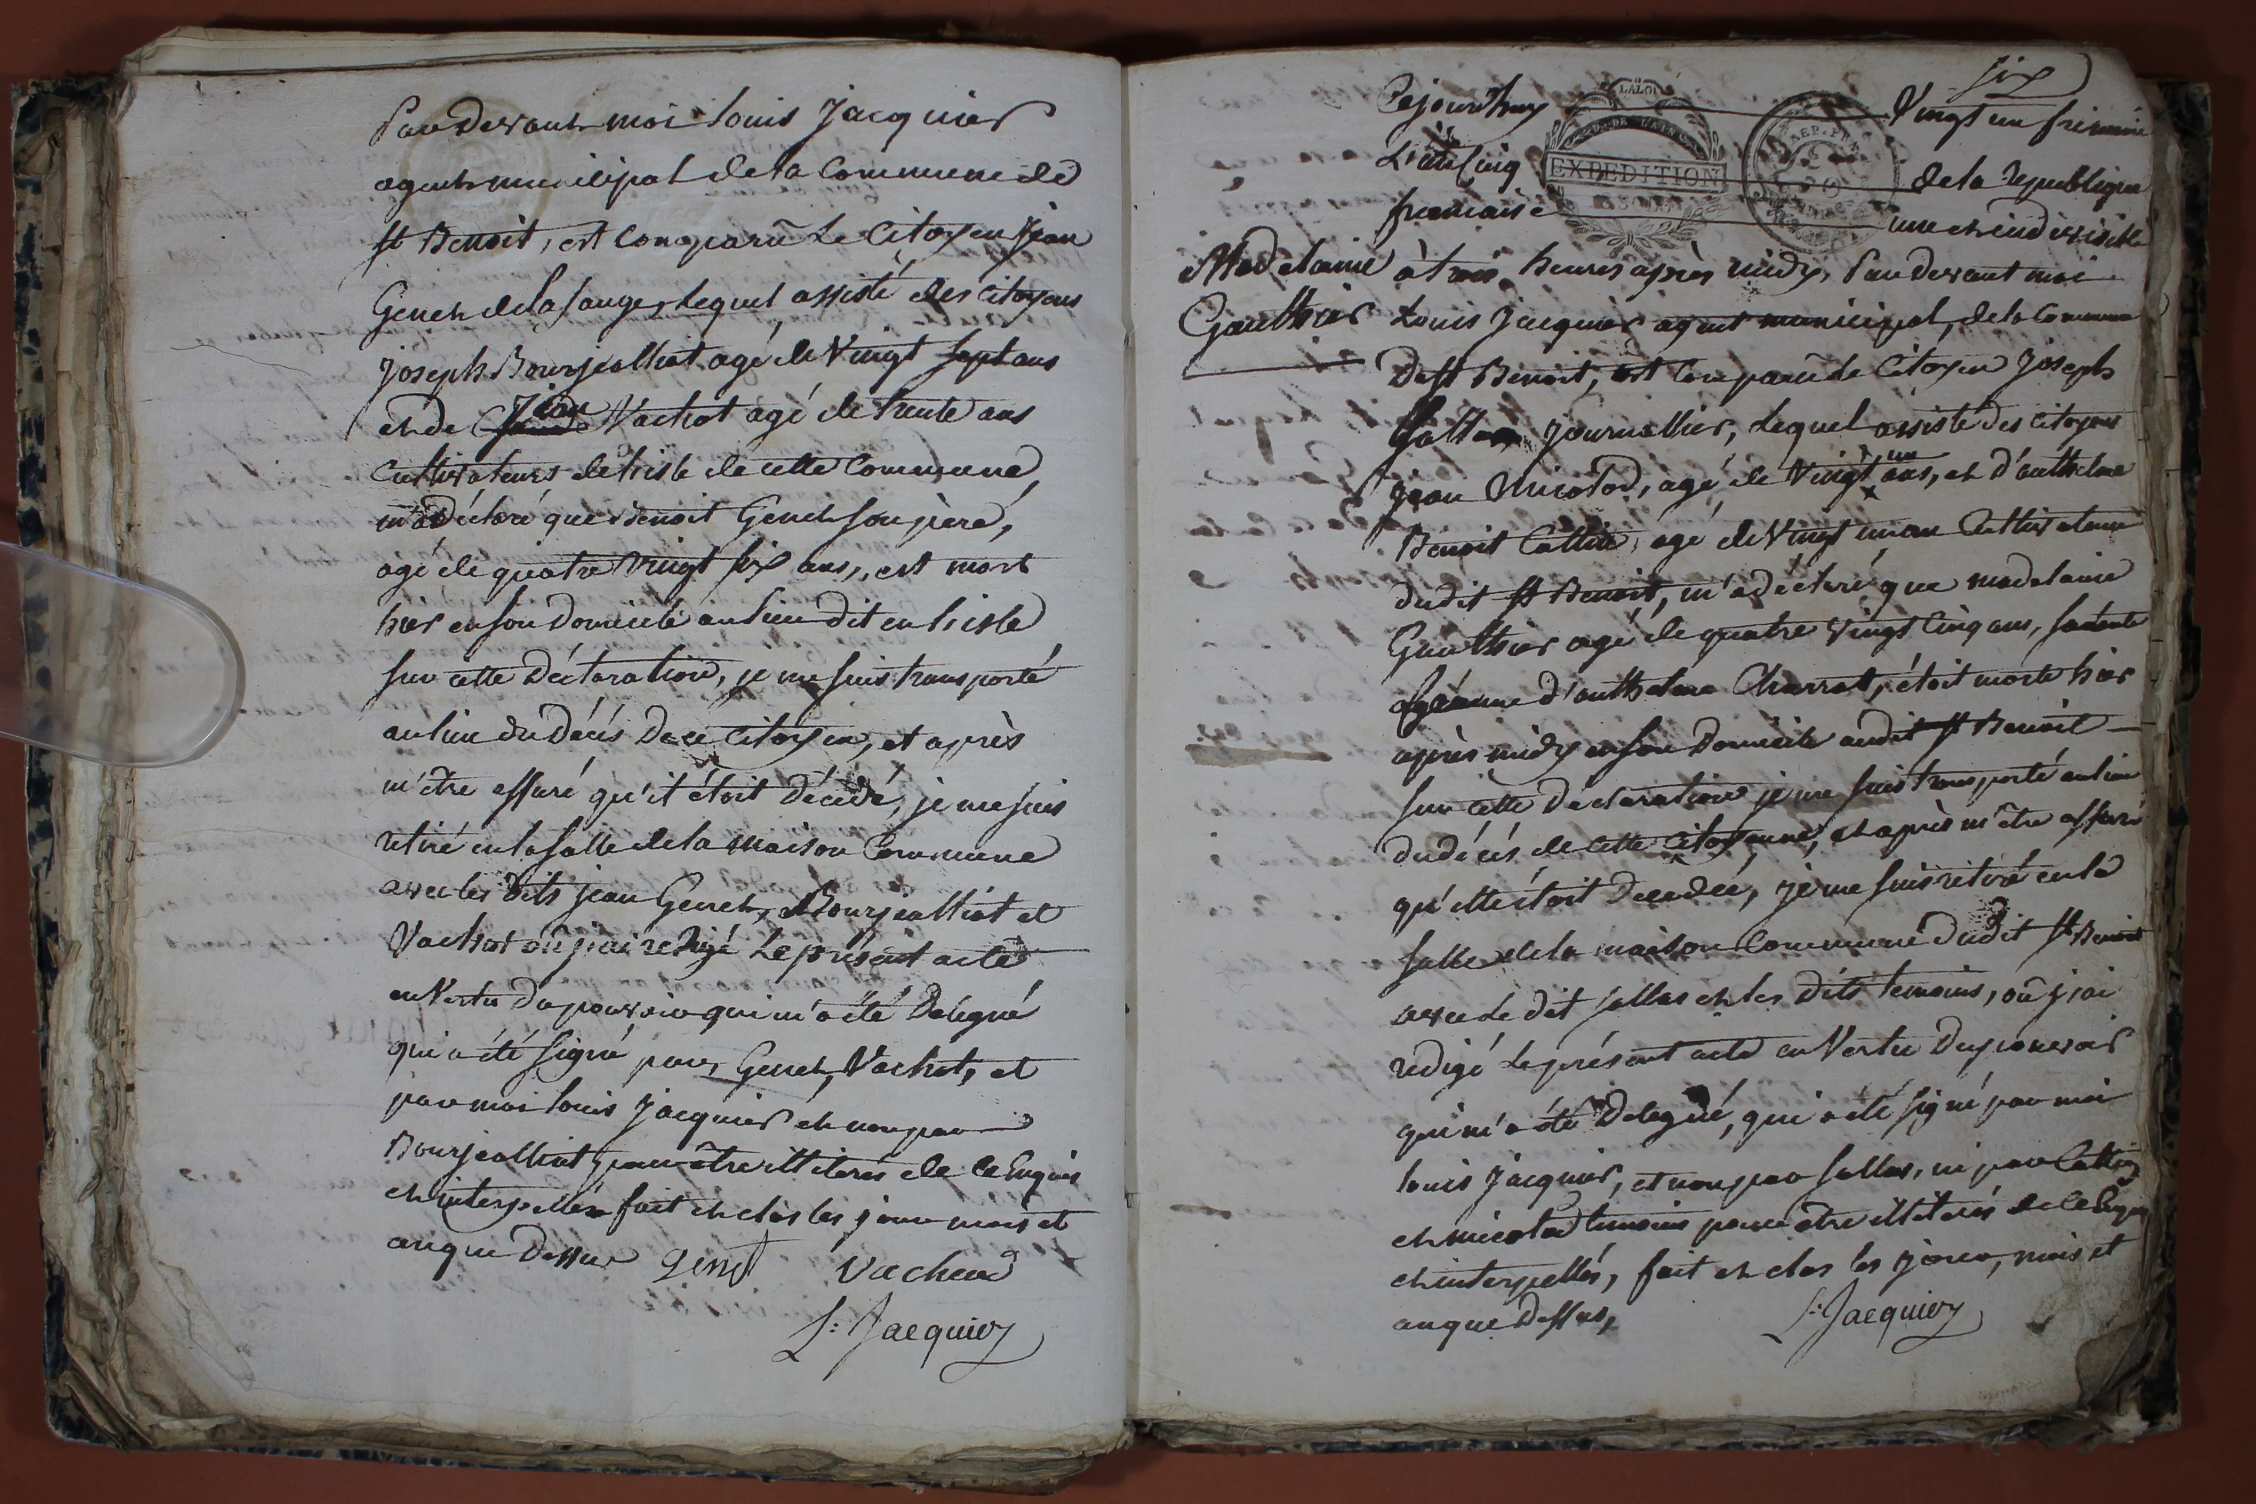 Par Devant moi Louis Jacquier
agent municipal de la Commune de
St Benoit, est comparu Le Citoyen Jean
Genet de la sauge, Lequel assisté des Citoyens
Joseph Bourjealliat agé de Vingt sept ans
et de Jean Vachot agé de trente ans
Cultivateurs de lisle de cette Commune,
m'a Déclaré que Benoit Genet son père,
agé de quatre Vingt six ans, est mort
hier en son Domicile au lieu dit en lisle
sur cette Déclaration, je me suis transporté
au lieu du Décés De ce Citoyen, et après
m'être assuré qu'il étoit Décédé, je me suis
retiré en la salle de la maison Commune
avec les Dits jean Genet, Bourjealliat et
Vachot où j'ai redigé Le présent acte
en Vertu du pouvoir qui m'a été Délegué
qui a été signé par Genet, Vachot, et
par moi Louis Jacquier et non par
Bourjealliat pour être illiterés de ce Enquis
et interpellés fait et clos les jour mois et
an que Dessus Genet Vachod
L: Jacquier
six
Cejourd'huy Vingt un frimaire
L'an Cinq de la republique
francaise une et indivisible
LA LOI
EXPEDITION
REP. FRA.
Madelaine
Gauthier
à trois heures après midy, Par Devant moi
Louis Jacquier agent municipal, de la Commune
De St Benoit, est Comparu Le Citoyen Joseph
Sallas journallier, Lequel assisté des Citoyens
jean Micolod, agé de Vingt un ans, et d'anthelme
Benoit Cattin, agé de Vingt un an Cultivateur
dudit St Benoit, m'a déclaré que madelaine
Gauthier agé de quatre vingt Cinq ans, sa tante
femme d'anthelme Charrat, étoit morte hier
après midy en son Domicile audit St Benoit
sur cette Déclaration je me suis transporté au lieu
du décés de cette citoyenne, et après m'être assuré
qu'elle étoit Decedée, je me suis retiré en la
salle de la maison Commune dudit St Benoit
avec Le dit sallas et les dits temoins, où j'ai
redigé Le présent acte en Vertu Du pouvoir
qui m'a été Delegué, qui a été signé par moi
Louis Jacquier, et non par sallas, ni par Cattin
et micolod temoins pour être illiterés de ce Enquis
et interpellés, fait et clos les jour, mois et
an que Dessus,
L: Jacquier